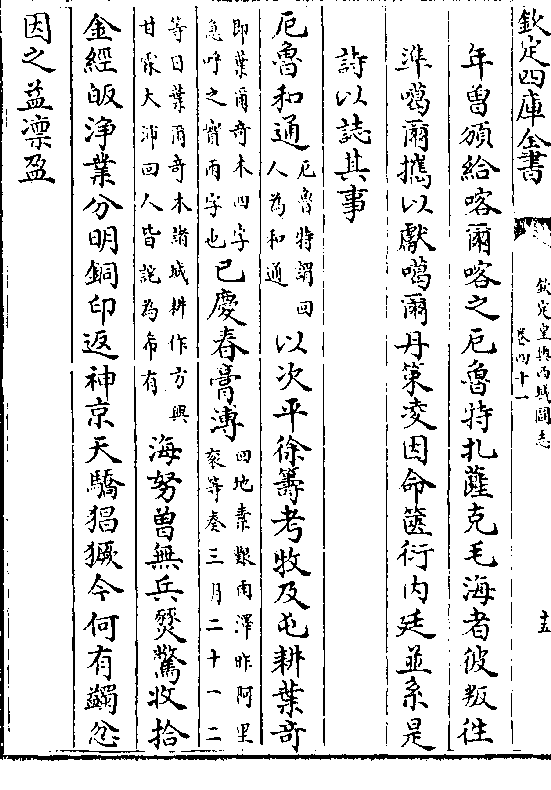 欽定四庫全書
欽定皇輿西域圖志
卷四十一
十五
年曽頒給喀爾喀之厄魯特扎薩克毛海者彼叛徃
準噶爾攜以獻噶爾丹策凌因命篋衍内廷並系是
詩以誌其事
厄魯和通厄魯特謂回人為和通以次平徐籌考牧及屯耕葉奇
即葉爾奇木四字急呼之實兩字也已慶春膏溥回地素艱雨澤昨阿里衮等奏三月二十一二
等日葉爾奇木諸城耕作方興甘霖大沛回人皆詫為希有海努曽無兵燹驚收拾
金經皈浄業分明銅印返神京天驕猖獗今何有蠲忿
因之益凛盈